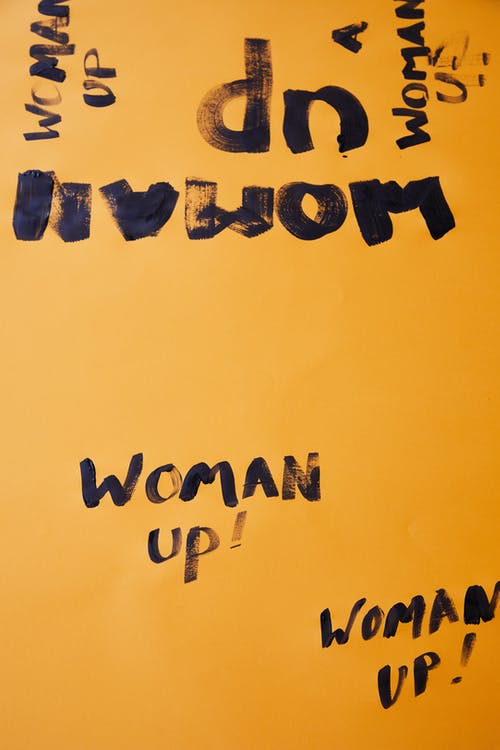 WOMAN
UP
A
WOMAN
UP!
WOMAN
UP
WOMAN
UP!
WOMAN
UP!